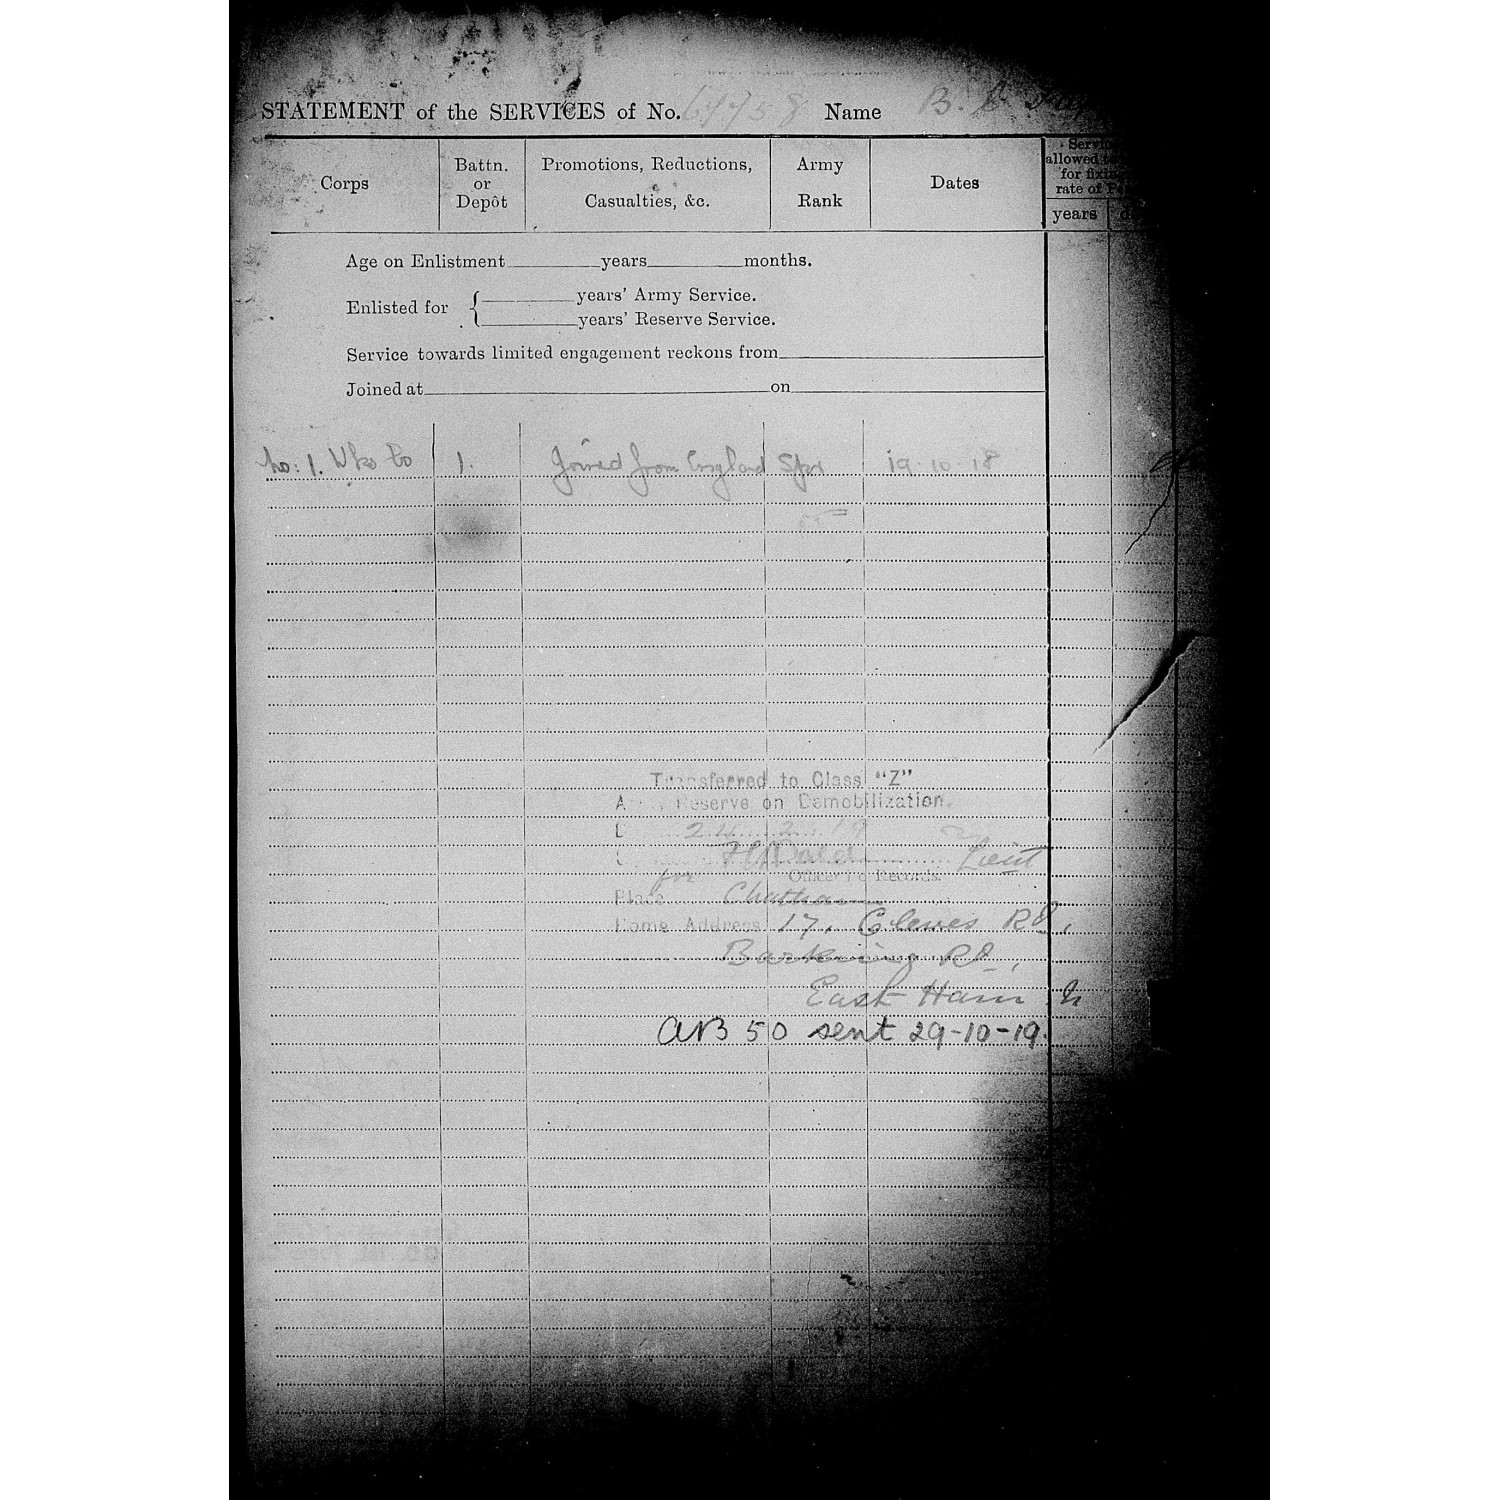 STATEMENT of the SERVICES of No. 61758 Name B.
Corps
Battn. or Depôt
Promotions, Reductions, Casualties, &c.
Army Rank
Dates
allowed
for
rate of
years
Age on Enlistment years months.
Enlisted for { years' Army Service.
years' Reserve Service.
Service towards limited engagement reckons from
Joined at on
No: 1. Wks Co 1. Joined from England Spr 19-10-18
Transferred to Class "Z"
Reserve on Demobilization.
24 2 19
Lieut
for Officer i/c Records.
Place Chatham
Home Address 17, Clewes Rd,
Barking Rd,
East Ham
AB 50 sent 29-10-19.